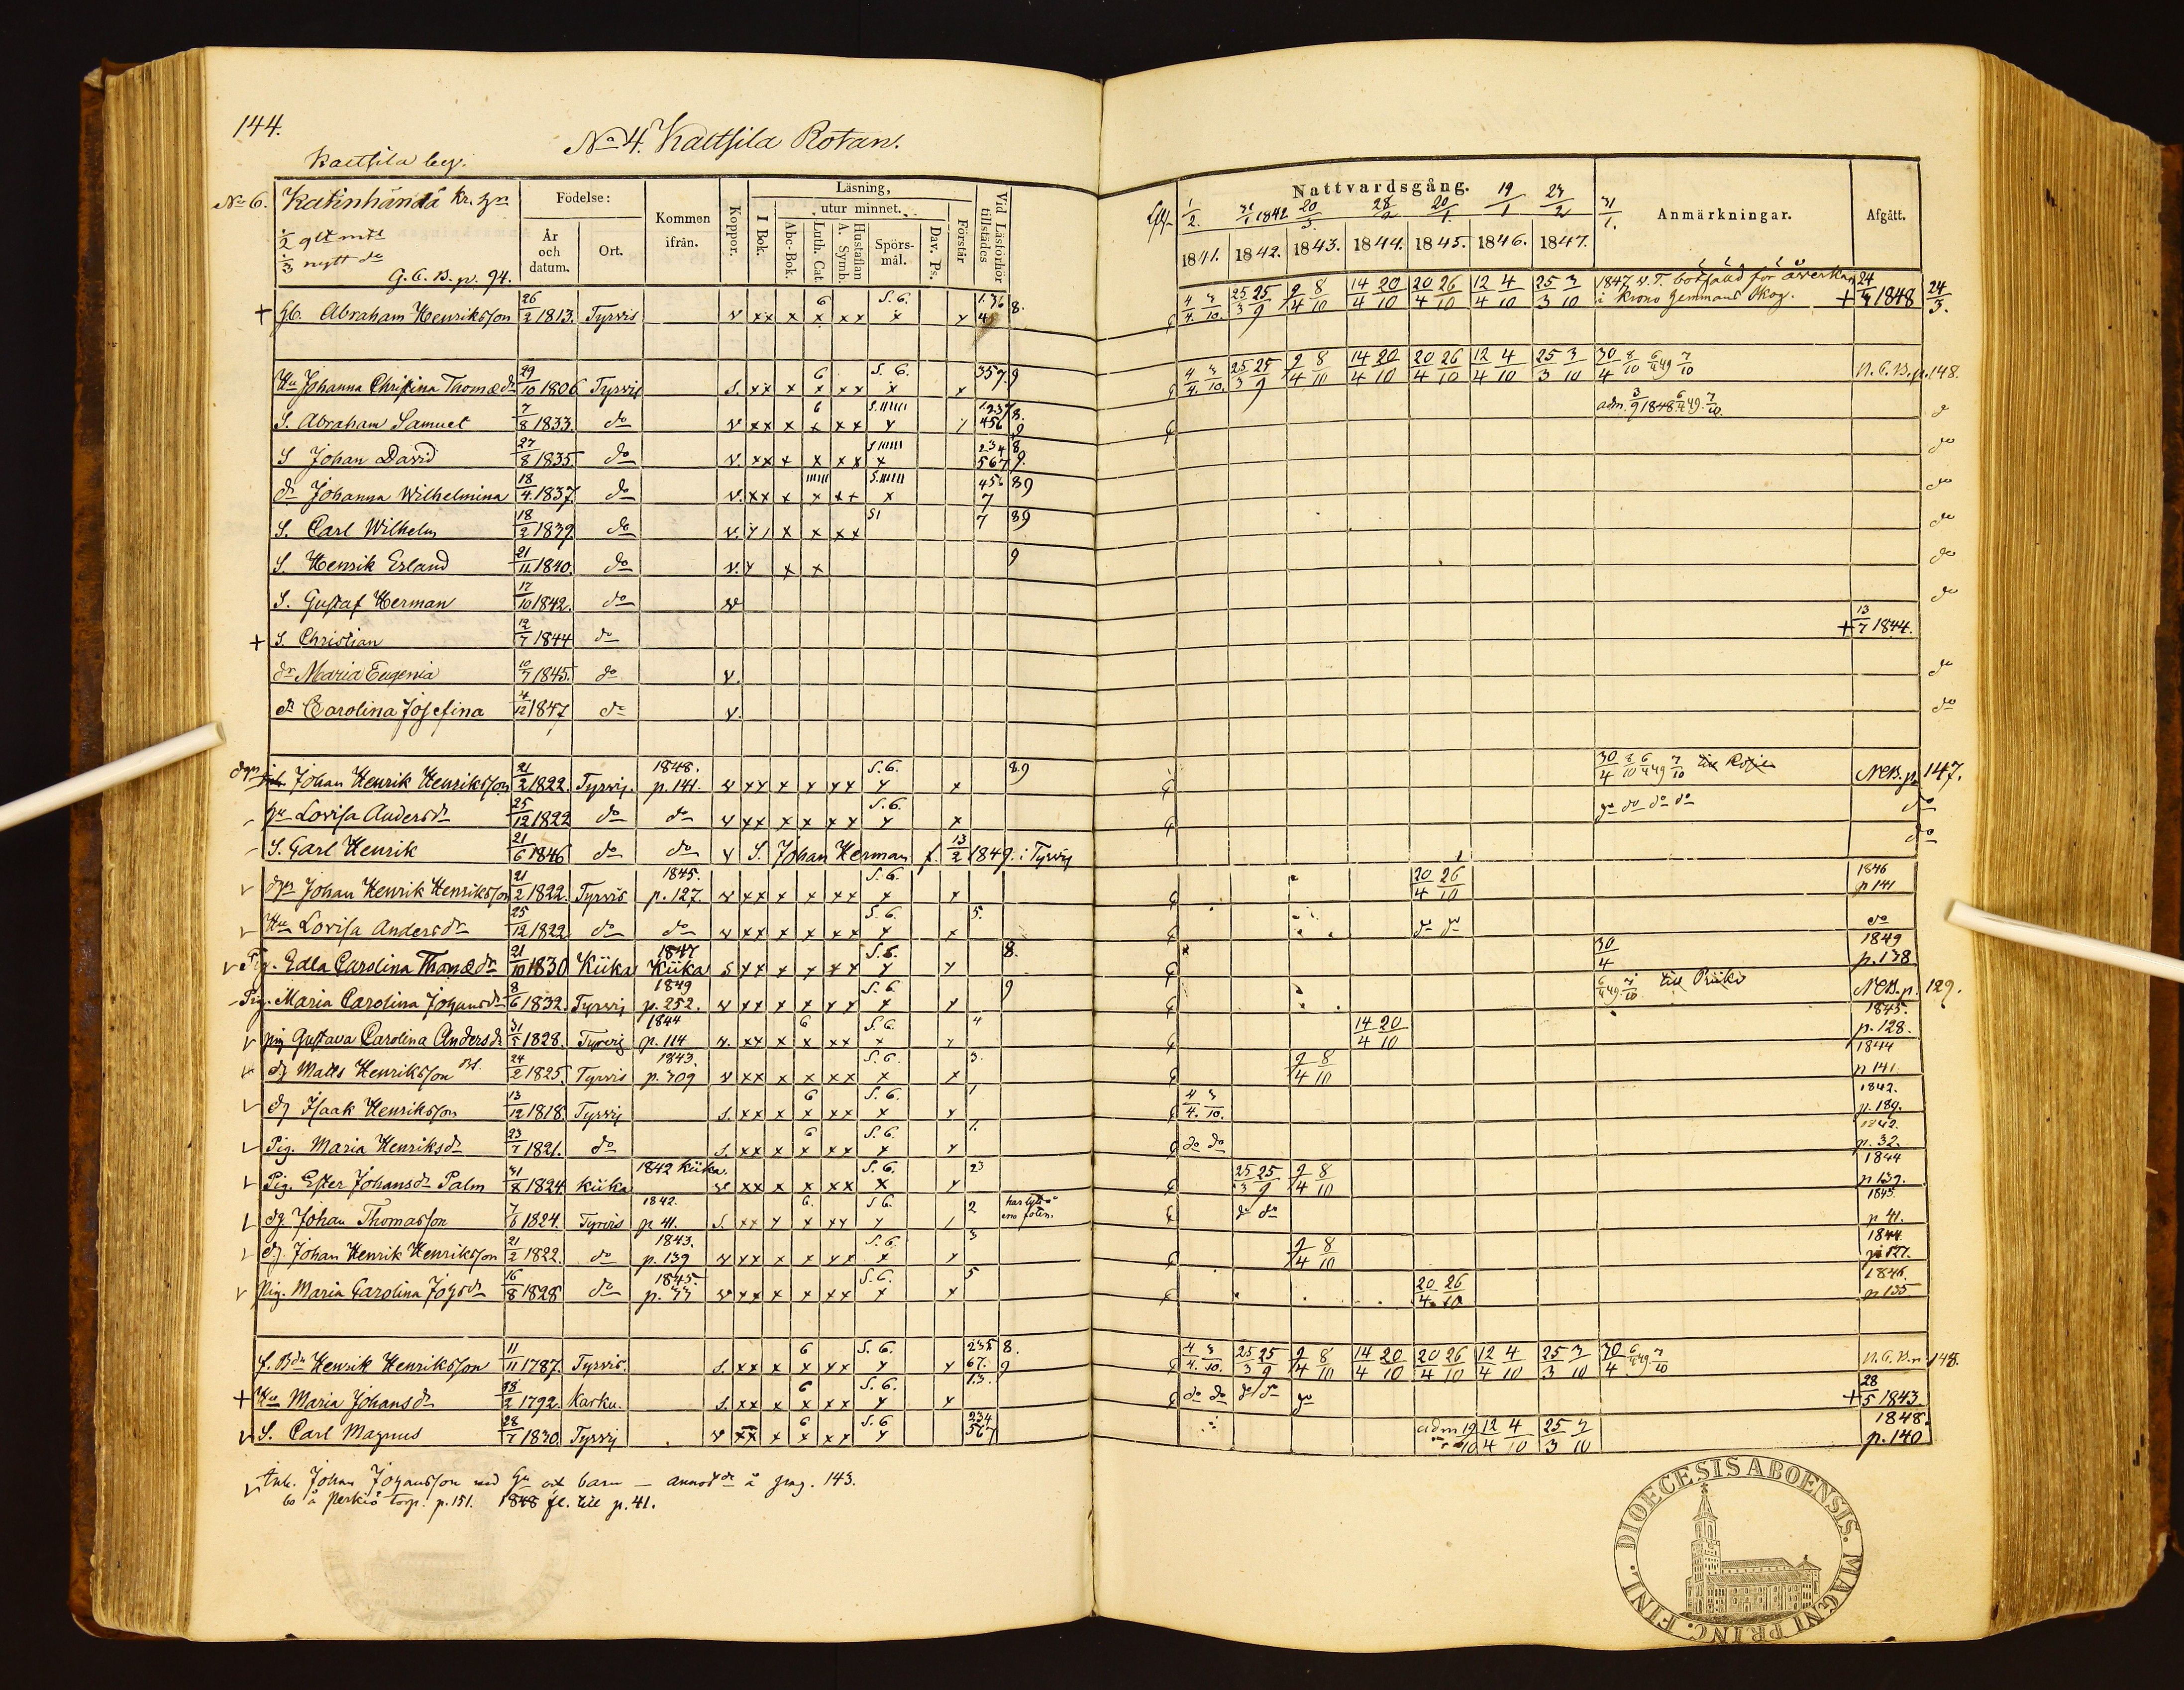 144.
No 4. Kaltsila Rotan.
Kaltsila by.
No 6. Katinhändä Kr. hn
1/2 glt mtl
1/3 nytt do
G. C. B. p. 94.
Födelse:
År och datum.
Ort.
Kommen ifrån.
Koppor.
Läsning,
I Bok.
utur minnet.
Abc-Bok.
Luth. Cat.
Hustaflan A. Symb.
Spörsmål.
Dav. Ps.
Förstår
Vid Läsförhör tillstädes
Nattvardsgång.
1/2. 31/1 1842 20/3. 28/2 20/1. 19/1 23/2 31/1.
1841. 1842. 1843. 1844. 1845. 1846. 1847.
Anmärkningar.
Afgått.
+ Gb. Abraham Henriksson 26/2 1813. Tyrvis v xx x x xx x 6 S. 6. 8. 4/4. 3/10. 25/3 25/9 9/4 8/10 14/4 20/10 20/4 26/10 12/4 4/10 25/3 3/10 1847 v. T. botfälld för åverkan i Krono Gemmans skog. + 24/3 1848 24/3.
Hu Johanna Christina Thomædr 29/10 1806 Tyrvis S. xx x x xx x 6 S. 6. 357. 9 4/4. 3/10. 25/3 25/9 9/4 8/10 14/4 20/10 20/4 26/10 12/4 4/10 25/3 3/10 30/4 8/10 6/4 49 7/10 N. C. B. p. 148.
S. Abraham Samuel 7/8 1833. do v xx x x xx 6 1.237 456 8. 9 adm. 3/9 1848 6/4 49. 7/10. do
S Johan David 27/8 1835. do v. xx x x xx x 234 567 8 9. do
dr Johanna Wilhelmina 18/4. 1837. do v. xx x x xx x 456 7 89 do
S. Carl Wilhelm 18/2 1839. do v. x x xx 7 89 do
S. Henrik Erland 21/11. 1840. do v. x x 9 do
S. Gustaf Herman 17/10 1842. do v do
+ S. Christian 12/7 1844 do + 13/7 1844.
dr Maria Eugenia 10/7 1845. do v. do
dr Carolina Josefina 4/12 1847 do v. do
dgn Johan Henrik Henriksson 21/2 1822. Tyrvis. 1848. p. 141. v xx x x xx S. 6. 8.9 30/4 8/10 6/4 49 7/10 NCB. p. 147.
hu Lovisa Andersdr 25/12 1822 do do v xx x x xx S. 6. do do do do do
S. Carl Henrik 21/6 1846 do do v S. Johan Herman f. 13/2 1849. i Tyrvis do
dgn Johan Henrik Henriksson 21/2 1822. Tyrvis 1845. p. 127. v xx x x xx x S. 6. 20/4 26/10 1846 p 141
Hu Lovisa Andersdr 25/12 1822 do do v xx x x xx S. 6. 5. do do do
Pig. Edla Carolina Thomædr 21/10 1830 Kiika 1847 Kiika S xx x x xx S. 6. 8. 30/4 1849 p. 138
Pig. Maria Carolina Johansdr 8/6 1832. Tyrvis 1849 p. 252. v xx x x xx S. 6 9 6/4 49. 7/10 NCB. p. 129.
pig Gustava Carolina Andersdr 31/5 1828. Tyrvis 1844 p. 114 v. xx x x xx 6 S. 6. 4 14/4 20/10 1845. p. 128.
dg Matts Henriksson 24/2 1825. Tyrvis 1843. p. 309 v xx x x xx x S. 6. 3. 9/4 8/10 1844 p 141.
dg Isaak Henriksson 13/12 1818. Tyrvis S. xx x x xx x 6 S. 6. 1 4/4. 3/10. 1842. p. 189.
Pig. Maria Henriksdr 23/7 1821. do S. xx x x xx 6 S. 6. 1. do do 1842. p. 32.
Pig. Ester Johansdr Palm 31/8 1824 Kiika 1842 Kiika. v xx x x xx x S. 6. 23 25/3 25/9 9/4 8/10 1844 p 139.
dg Johan Thomasson 7/6 1824. Tyrvis 1842. p 41. S. xx x x xx 6. S 6. 2 har lyte å ena foten. do do 1843. p 41.
dg. Johan Henrik Henriksson 21/2 1822. do 1843. p. 139 v xx x x xx x S. 6. 3 9/4 8/10 1844 p 127.
Pig. Maria Carolina Johsdr 16/8 1828 do 1845. p. 33 v xx x x xx x S. 6. 5 20/4. 26/10 1846. p 135
f. Bdn Henrik Henriksson 11/11 1787. Tyrvis. S. xx x x xx 6 S. 6. 235 67. 8. 9 4/4. 3/10. 25/3 25/9 9/4 8/10 14/4 20/10 20/4 26/10 12/4 4/10 25/3 3/10 30/4 6/4 49 7/10 N. C. B. p. 148.
+ Hu Maria Johansdr 28/2 1792. Karku. S. xx x x xx 6 S. 6. 13. do do do do do + 28/5 1843.
S. Carl Magnus 28/7 1830. Tyrvis v xx x x xx 6 S. 6 234 567 adm 19/10 12/4 4/10 25/3 3/10 1848. p. 140
Inh. Johan Johansson med hu och barn — annoterade å pag. 143.
bo å Perkiö torp. p. 151. 1848 fl. till p. 41.
DIOECESIS ABOENSIS. MAGNI PRINC. FINL.